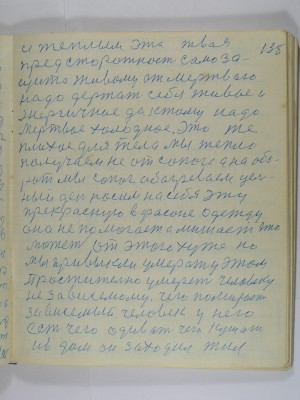 и теплым эта твоя 135
предсторожност само за-
щита живому от мертвого
надо держат себя живое и
энергичное да к тому надо
мертвое холодное, это же
плохое для тела мы тепло
получаем не от сопога а на обо-
рот мы сопог обогреваем цел-
ный ден носим на себя эту
прекрасную в фасоне одежду
она не помогает а мишает что
может от этого хуже но
мы привыкли умерат у этом
простително умерет человеку
не зависемому, чего помирает
зависемый человек у него
ест чего одиват чего кушат
и в дом он заходил жил